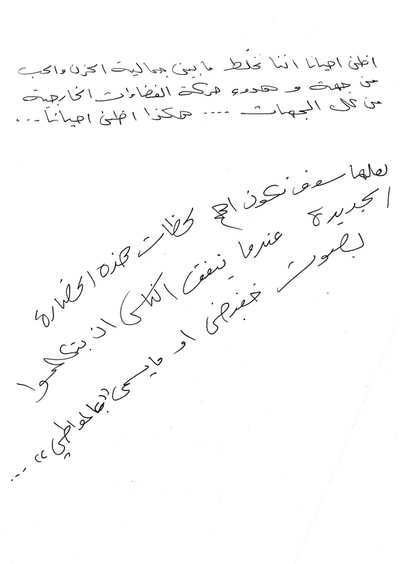 اظن احيانا اننا نخلط ما بين جمالية الحزن والحب
من جهة و هدوء حركة الفضاءات الخارجية
من كل الجهات .... هكذا اظن احياناً...
لعلها سوف تكون اهم لحظات هذه الحضارة
الجديدة عندما يتفق الناس ان يتكلموا
بصوت خفيض او ما يسمى "بالواطي" ...